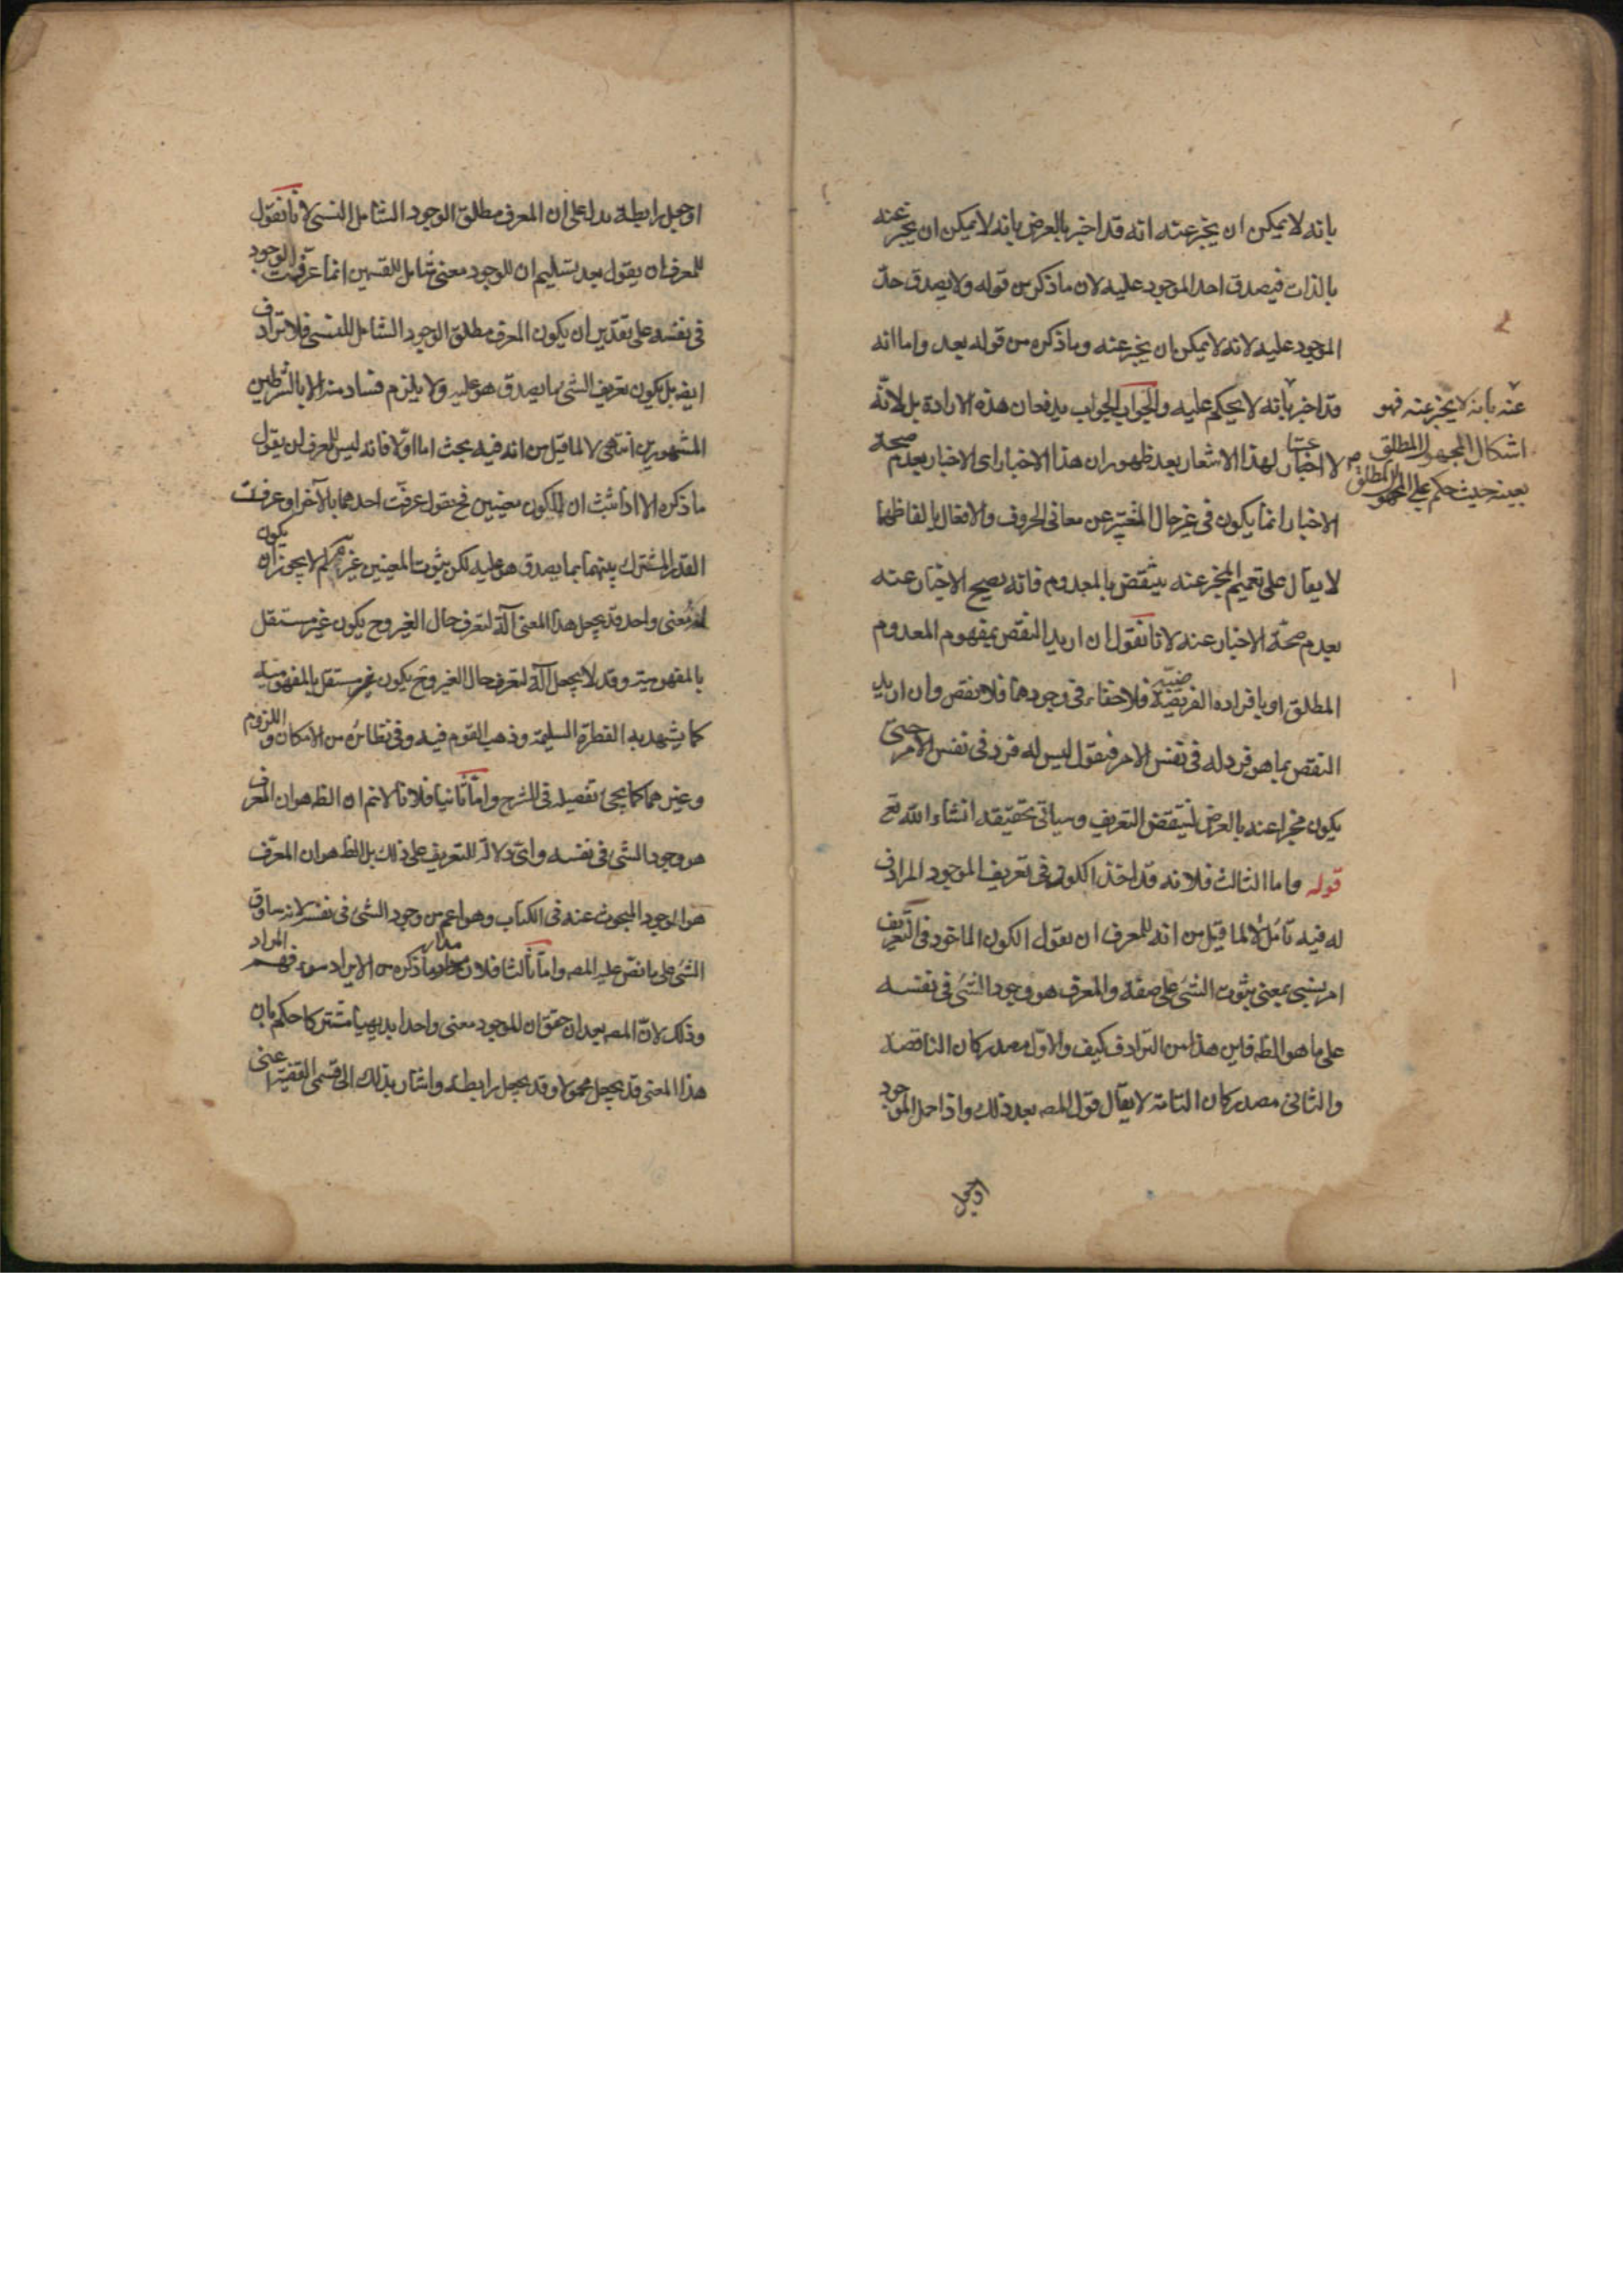 بانه لا يمكن ان يخبر عنه انه قد اخبر بالعرض بانه لا يمكن ان يخبر عنه
بالذات فيصدق احد الموجود عليه لان ما ذكر من قوله ولا يصدق حد
الموجود عليه لانه لا يمكن ان يخبر عنه وما ذكره من قوله بعد واما انه
قد اخبر بانه لا يحكم عليه والجواب الجواب يدفعان هذه الارادة بل لانه
عنه بانه لا يخبر عنه فهو
اشكال المجهول المطلق
بعينه حيث حكم على المجهول المطلق
لا اخبار لهذا الاشعار بعد ظهور ان هذا الاخبار اى الاخبار بعدم صحة
الاخبار انما يكون فى غير حال المعبر عن معانى الحروف والافعال بالفاظهما
لا يقال على تعميم المخبر عنه ينتقض بالمعدوم فانه يصح الاخبار عنه
بعدم صحة الاخبار عنه لانا نقول ان اريد النقض بمفهوم المعدوم
المطلق او بافراده الفرضية فلا خفاء فى وجودهما فلا نقض وان اريد
النقض بما هو فرد له فى نفس الامر فنقول ليس له فرد فى نفس الامر حتى
يكون مخبرا عنه بالعرض لينتقض التعريف وسياتى تحقيقه انشاء الله تع
قوله واما الثالث فلانه قد اخذ الكون فى تعريف الموجود المرادف
له فيه تأمل لا لما قيل من انه للمعرف ان يقول الكون الماخوذ فى التعريف
امر نسبى بمعنى ثبوت الشئ على صفة والمعرف هو وجود الشئ فى نفسه
على ما هو الظ فاين هذا من الترادف كيف والاول مصدر كان الناقصة
والثانى مصدر كان التامة لا يقال قول المص بعد ذلك واذا حمل الموجود
او جعل
او جعل رابطة يدل على ان المعرف مطلق الوجود الشامل النسبى لانا نقول
للمعرف ان يقول بعد تسليم ان للوجود معنى شامل للقسمين انما عرفت الوجود
فى نفسه على تقدير ان يكون المعرف مطلق الوجود الشامل للنسبى فلا ترادف
ايض بل يكون تعريف الشئ بما يصدق هو عليه ولا يلزم فساد منه الا بالشرطين
المشهورين انتهى لا لما قيل من انه فيه بحث اما اولا فانه ليس للمعرف ان يقول
ما ذكره الا اذا ثبت ان للكون معنيين فح يقول عرفت احدهما بالآخر او عرفت
القدر المشترك بينهما بما يصدق هو عليه لكن ثبوت المعنيين غير لم لا يجوز ان يكون
له معنى واحد قد يجعل هذا المعنى آلة لتعرف حال الغير وح يكون غير مستقل
بالمفهومية وقد لا يجعل آلة لتعرف حال الغير وح يكون غير مستقل بالمفهومية
كما يشهد به الفطرة السليمة وذهب القوم فيه وفى نظائره من الامكان واللزوم
وغيرهما كما يجئ تفصيله فى الشرح واما ثانيا فلانا لا نم ان الظ هو ان المعرف
هو وجود الشئ فى نفسه واى دلالة للتعريف على ذلك بل الظ هو ان المعرف
هو الوجود المبحوث عنه فى الكتاب وهو اعم من وجود الشئ فى نفسه لانه يساوق
الشئ على ما نص عليه المص واما ثالثا فلان مدار ما ذكره من الايراد سوء فهم المراد
وذلك لان المص بعد ان حقق ان للموجود معنى واحدا بديهيا مشتركا حكم بان
هذا المعنى قد يجعل محمولا وقد يجعل رابطة واشار بذلك الى قسمى القضية اعنى